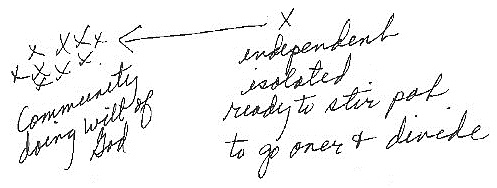 x x x x x x x x x x
x
Community
doing will of
God
independent
isolated
ready to stir pot
to go over & divide